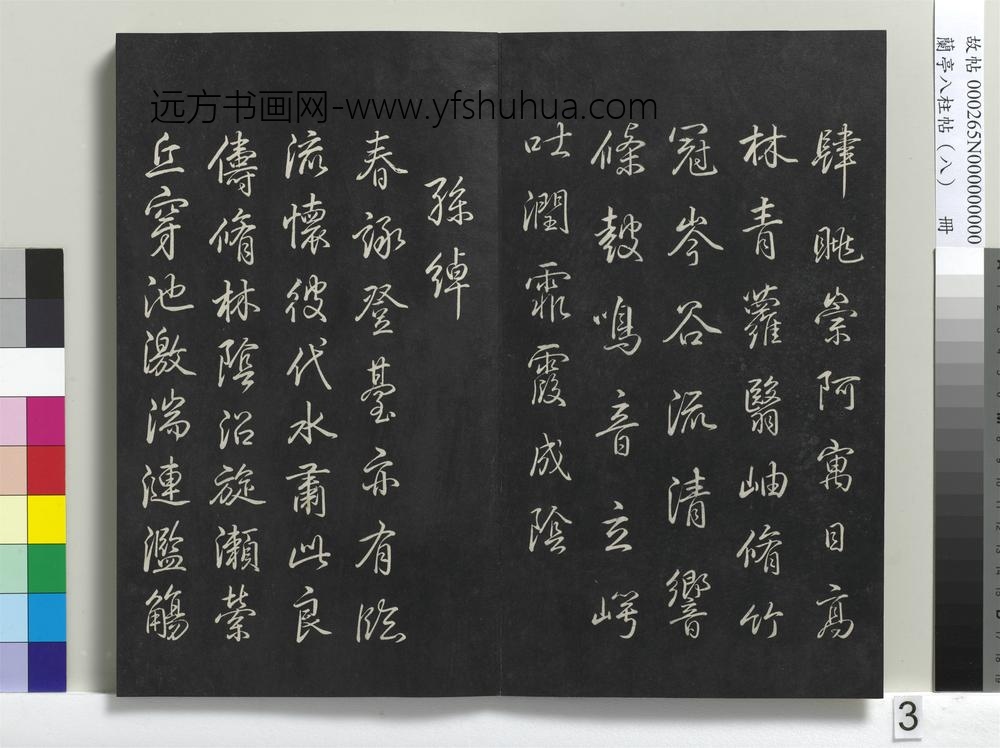 远方书画网-www.yfshuhua.com
肆眺崇阿寓目高
林青蘿翳岫脩竹
冠岑谷流清響
條鼓鳴音玄崿
吐潤霏霞成陰
孫綽
春詠登臺亦有臨
流懷彼代水肅此良
儔脩林陰沼旋瀨縈
丘穿池激湍連濫觴
故帖 000265N000000000
蘭亭八柱帖（八） 冊
3